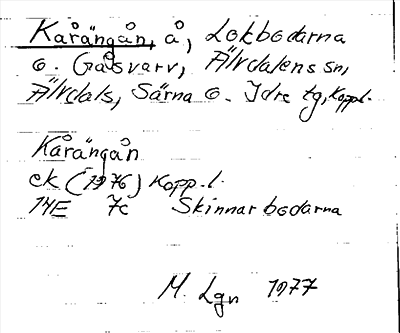 Kårängån, å, Lokbodarna
o. Gåsvarv, Älvdalens sn,
Älvdals, Särna o. Idre tg, Kopp.l.
Kårängån
ek (1976) Kopp.l.
14E 7c Skinnarbodarna
M. Lgn 1977